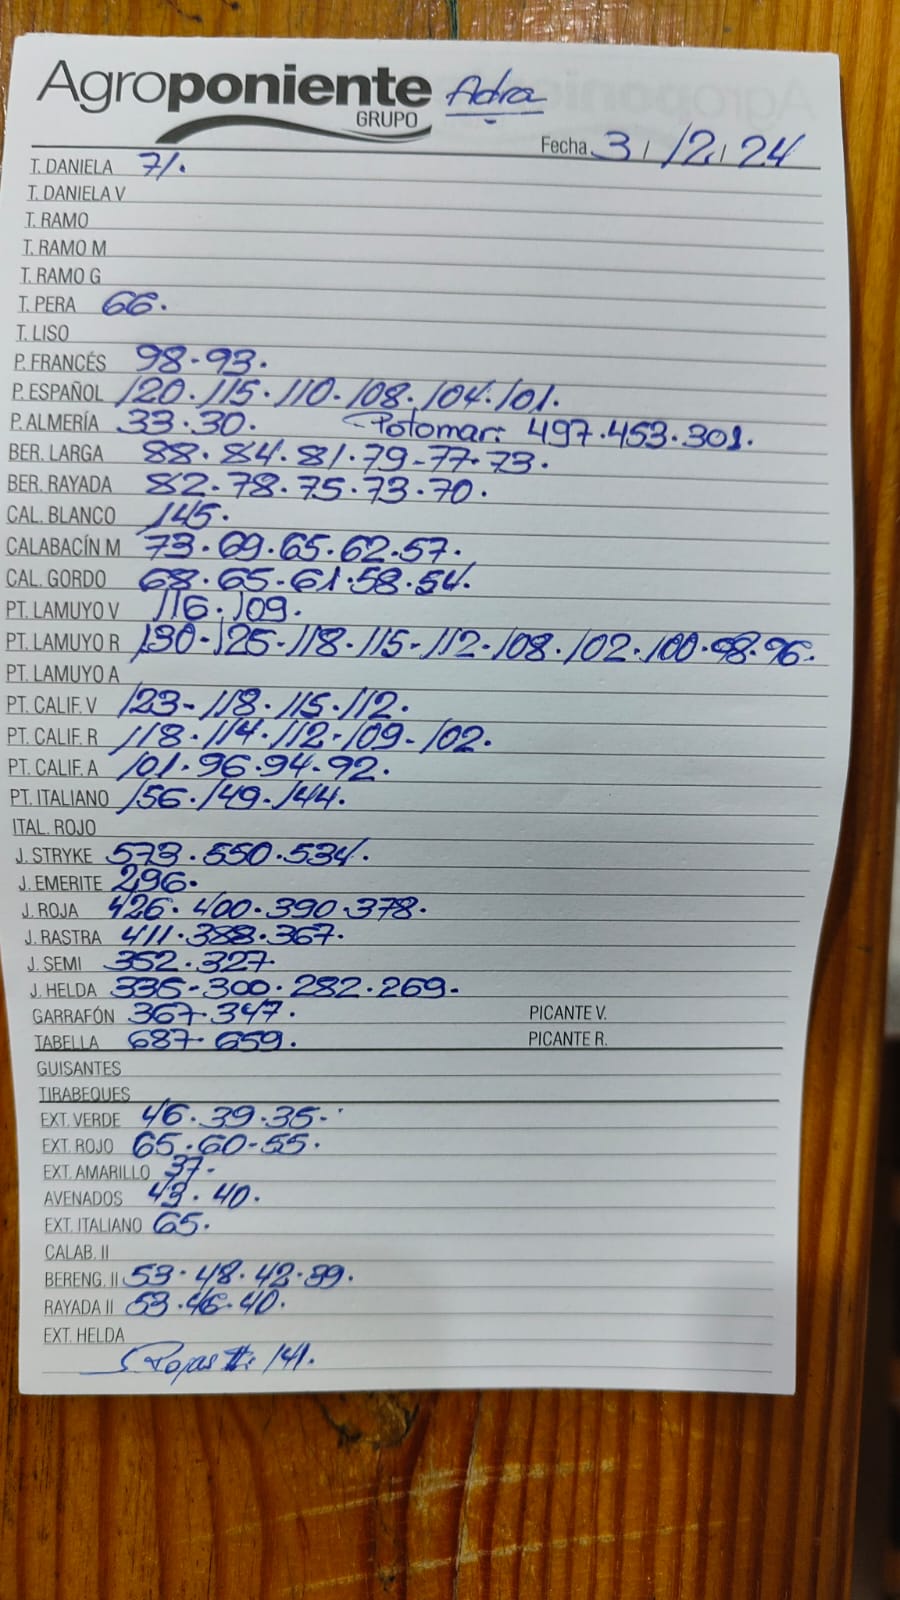 Agroponiente Adra
GRUPO
Fecha 3/12/24
T. DANIELA 71.
T. DANIELA V
T. RAMO
T. RAMO M
T. RAMO G
T. PERA 66.
T. LISO
P. FRANCÉS 98.93.
P. ESPAÑOL 120.115.110.108.104.101.
P. ALMERÍA 33.30. Potomar: 497.453.301.
BER. LARGA 88.84.81.79-77.73.
BER. RAYADA 82.78.75.73.70.
CAL. BLANCO 145.
CALABACÍN M 73.69.65.62.57.
CAL. GORDO 68.65-61.58.54.
PT. LAMUYO V 116.109.
PT. LAMUYO R 130-125-118.115-112-108.102.100.98.96.
PT. LAMUYO A
PT. CALIF. V 123-118.115.112.
PT. CALIF. R 118.114.112-109-102.
PT. CALIF. A 101.96.94-92.
PT. ITALIANO 156.149.144.
ITAL. ROJO
J. STRYKE 573.550.534.
J. EMERITE 296.
J. ROJA 426.400.390.378.
J. RASTRA 411.388.367.
J. SEMI 352.327.
J. HELDA 336-300.282.269-
GARRAFÓN 367.347. PICANTE V.
TABELLA 687.659. PICANTE R.
GUISANTES
TIRABEQUES
EXT. VERDE 46.39.35-
EXT. ROJO 65.60-55.
EXT. AMARILLO 37-
AVENADOS 43.40.
EXT. ITALIANO 65.
CALAB. II
BERENG. II 53.48.42.39.
RAYADA II 53.46.40.
EXT. HELDA
Rojas II: 141.